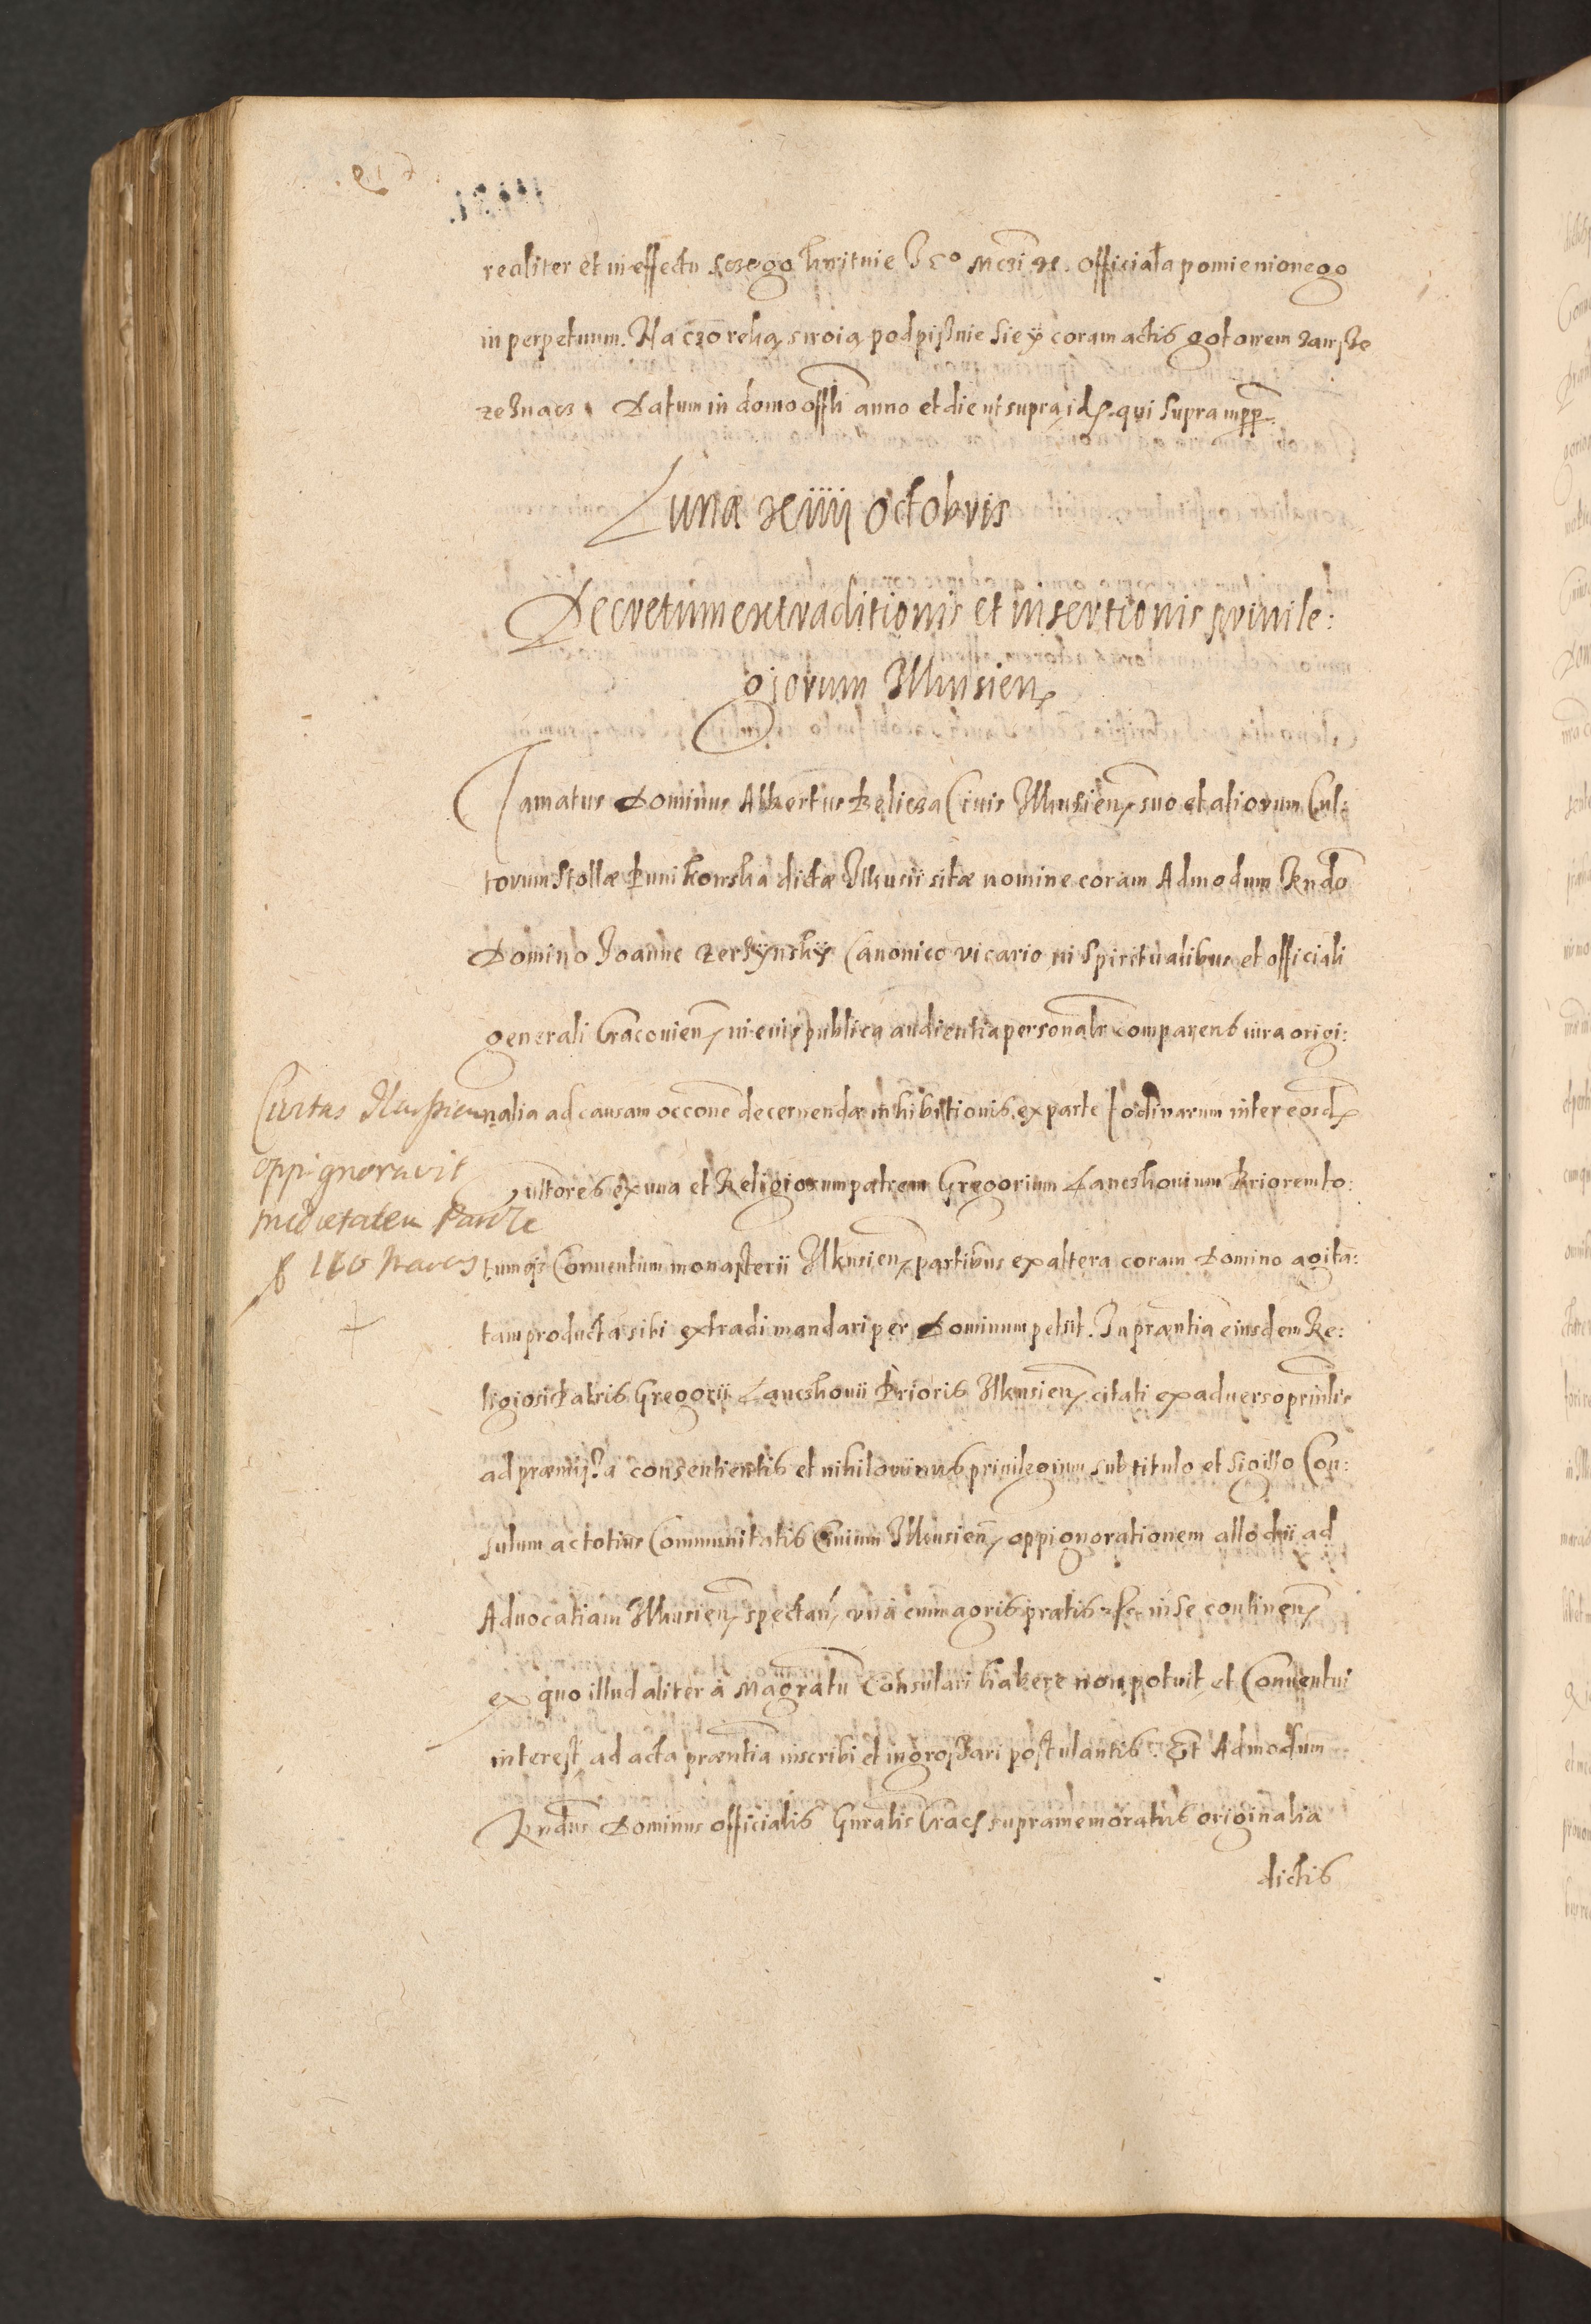 realiter et in effectu sczego kwituie Jeo Mczi X. Officiała pomienionego
in perpetuum. Na czo ręką swoią podpißuie sie y coram actis gotowem zawße
zeznacz. Datum in domo offli anno et die ut supra, idẽ qui supra mpp.
Lunæ XIIII Octobris
Decretum extraditionis et insertionis priuile:
giorum Ilkusien
Famatus Dominus Albertus Belicza Ciuis Ilkusien, suo et aliorum Cul:
torum Stollæ Punikowska dictæ Ilkusii sitæ nomine coram Admodum Rndo
Domino Joanne Zerzynsky Canonico vicario in Spiritualibus et officiali
generali Cracouien, in eius publica audientia personalr comparens iura origi:
nalia ad causam occone decernendæ inhibitionis ex parte fodinarum inter eosdẽ
Cultores ex una et Religiosum patrem Gregorium Lanczkouium Priorem to:
tumqs Conuentum monasterii Ilkusien, partibus ex altera coram Domino agita:
tam producta sibi extradi mandari per Dominum petsit. In præntia eiusdem Re:
ligiosi Patris Gregorii Lanczkouii Prioris Ilkusien, citati ex aduerso printis
ad præmißa consentientis et nihilominus priuilegium sub titulo et sigillo Con:
sulum ac totius Communitatis Ciuium Ilkusien, oppignorationem allodii ad
Aduocatiam Ilkusien, spectan, vna cum agris pratis etc. in se continen,
ex quo illud aliter a Magratu Consulari habere non potuit, et Conuentui
interest, ad acta præntia inscribi et ingroßari postulantis. Et Admodum
Rndus Dominus officialis Gnralis Crac supramemoratus originalia
dictis
Ciuitas Ilkussien
oppignorauit
medietatem
160 marcs